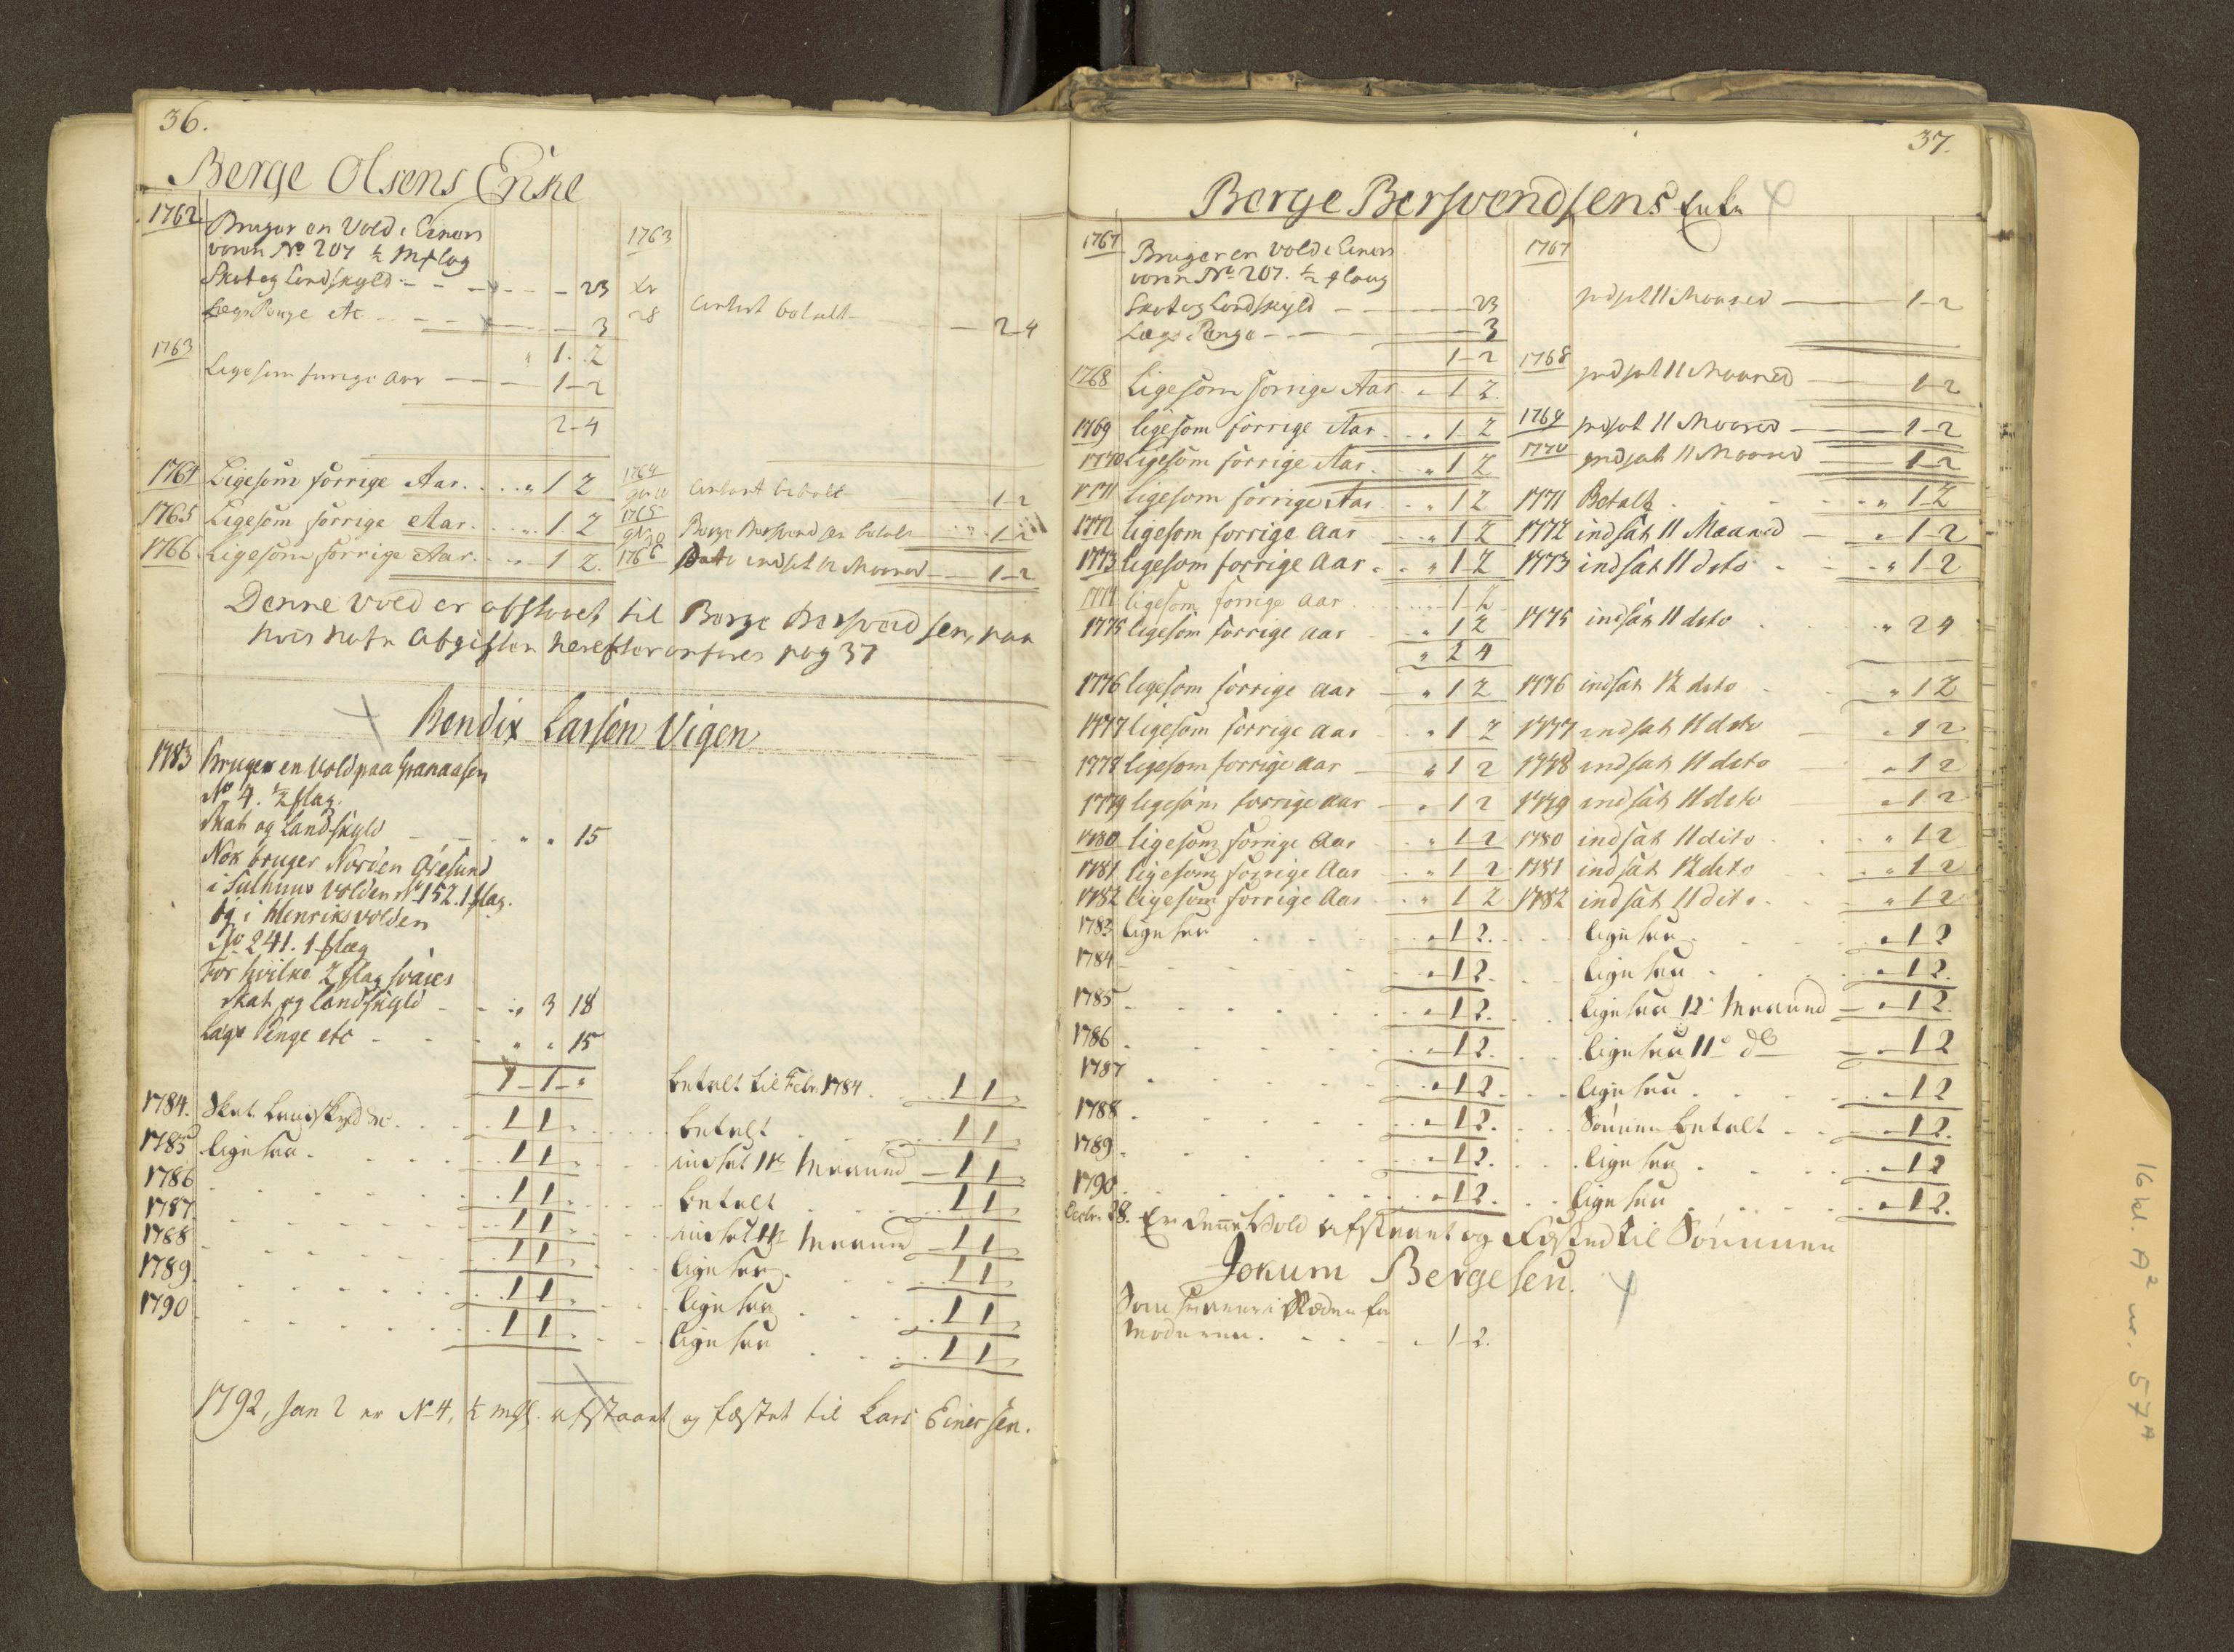 36.
Berge Olsens Enke
1762 Bruger en Vold i Einers
voren No 207 ½ Mflag
Skat og Landskyld - - - - - 23
LægsPenge etc - - - - 3
" 1. 2
1763 Ligesom forrige Aar - - 1-2
2-4
1763
28
contant betalt - 2-4
1764 Ligesom forrige Aar. . . . " 1 2
1764 contant betalt 1-2
1765 Ligesom forrige Aar. . . . " 1 2
1765 Berge Bersvendsen betalt . . " 1-2
1766 Ligesom forrige Aar. . . " 1 2.
1766 indsat 12 Maaned - 1-2
Denne Vold er afstaaet til Berge Bersvendsen, paa
hvis Nafn Afgiften herefter anføres pag 37
Bendix Larsen Vigen
1783 Bruger en Vold paa Granaasen
No 4. ½ flag.
Skat og Landskyld - - " " 15
Nok bruger Norden Øresund
i Sulhuus Volden No 152. 1 flag.
og i Henriksvolden
No 241. 1 flag
For hvilke 2 flag svares
Skat og Landskyld - - " 3 18
Lægs Penge etc - - - " " 15
1-1-"
betalt til Febr. 1784. . . 1 1 "
1784. Skat Landskyld &c. . . . 1 1 "
betalt . . . 1 1 "
1785 ligesaa . . . . 1 1 "
indsat 11te Maaned - 1 1 "
1786 . . . . 1 1 "
betalt . . . 1 1 "
1787 . . . . 1 1 "
indsat 11te Maaned - 1 1 "
1788 . . . . 1 1 "
ligesaa . . . 1 1 "
1789 . . . . 1 1 "
ligesaa . . . 1 1 "
1790 . . . . 1 1 "
ligesaa . . . 1 1 "
1792, Jan 2 er No 4, ½ mfl. afstaaet og fæstet til Lars Einersen.
37.
Berge Bersvendsens Enke
1767 Bruger en Vold i Einers
voren No 207. ½ flaug
Skat og Landskyld - - - 23
Lægs Penge - - - 3
1-2
1767
indsat 11 Maaned - 1-2
1768 Ligesom forrige Aar . " 1 2.
1768 indsat 11 Maaned - 1-2
1769 ligesom forrige Aar . . " 1 2
1769 indsat 11 Maaned - 1-2
1770 Ligesom forrige Aar . . " 1 2
1770 indsat 11 Maaned 1-2
1771 ligesom forrige Aar . . " 1 2
1771 Betalt . . . . " 1-2
1772 ligesom forrige Aar . . " 1 2
1772 indsat 11 Maaned - " 1-2
1773 ligesom forrige Aar . . " 1 2
1773 indsat 11 dito - . " 1-2
1774 ligesom forrige Aar . . . 1-2
1775 ligesom forrige Aar . " 1 2
" 2 4
1775 indsat 11 dito . . " 2 4
1776 ligesom forrige Aar - " 1 2
1776 indsat 12 dito . . " 1 2
1777 ligesom forrige Aar . " 1 2
1777 indsat 11 dito - " 1 2
1778 ligesom forrige Aar - " 1 2
1778 indsat 11 dito " 1 2
1779 ligesom forrige Aar - " 1 2
1779 indsat 11 dito " 1 2
1780 ligesom forrige Aar . " 1 2
1780 indsat 11 dito . . " 1 2
1781 ligesom forrige Aar . " 1 2
1781 indsat 12 dito . . " 1 2
1782 ligesom forrige Aar . " 1 2
1782 indsat 11 dito . . " 1 2
1783 ligesaa . . . " 1 2.
ligesaa . . . " 1 2
1784 - . . . " 1 2.
ligesaa . . . " 1 2.
1785 - . . . " 1 2.
ligesaa 12te Maaned - " 1 2.
1786 . . . . " 1 2.
ligesaa 11te do - " 1 2
1787 . . . . " 1 2.
ligesaa . . . " 1 2
1788 . . . . " 1 2.
Sønnen betalt . . " 1 2.
1789 . . . . " 1 2.
ligesaa . . . " 1 2
1790 . . . . " 1 2.
ligesaa . . . " 1 2.
Decbr. 28. Er denne Vold afstaaet og Fæsted til Sønnen
Jokum Bergesen.
Som svarer i Stæden for
Moderen . . . . " 1 2.
16 kl. A² nr. 57ᴬ